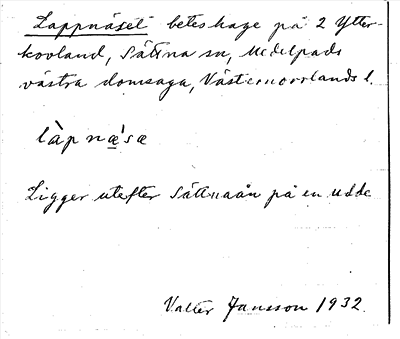 Lappnäset beteshage på 2 Ytter-
kovland, Sättna sn, Medelpads
västra domsaga, Västernorrlands l.
làp næ̀sæ
Ligger utefter Sättnaån på en udde
Valter Jansson 1932.